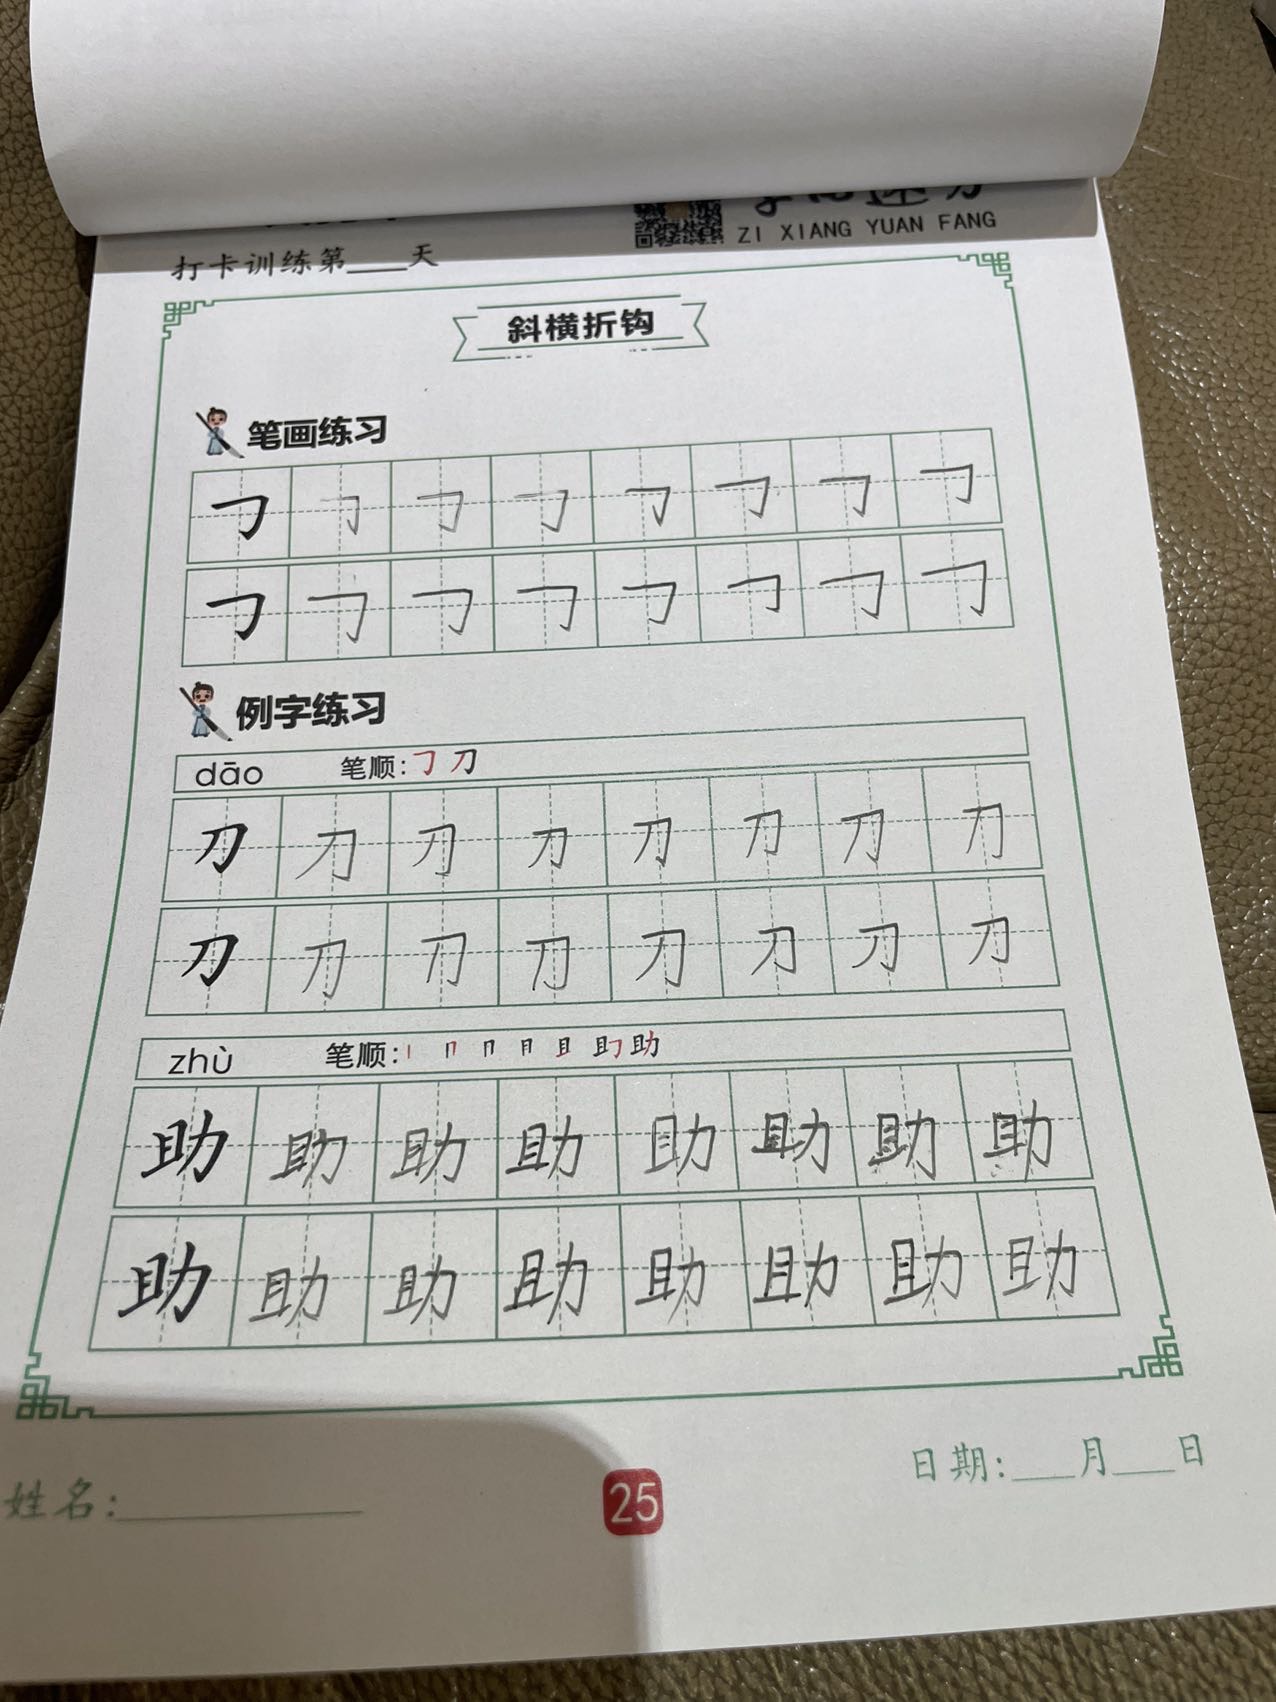 ZI XIANG YUAN FANG
打卡训练第____天
斜横折钩
笔画练习
㇆ ㇆ ㇆ ㇆ ㇆ ㇆ ㇆ ㇆
㇆ ㇆ ㇆ ㇆ ㇆ ㇆ ㇆ ㇆
例字练习
dāo 笔顺:㇆ 刀
刀 刀 刀 刀 刀 刀 刀 刀
刀 刀 刀 刀 刀 刀 刀 刀
zhù 笔顺:丨 冂 月 且 助
助 助 助 助 助 助 助 助
助 助 助 助 助 助 助 助
姓名:____ 25 日期:____月____日